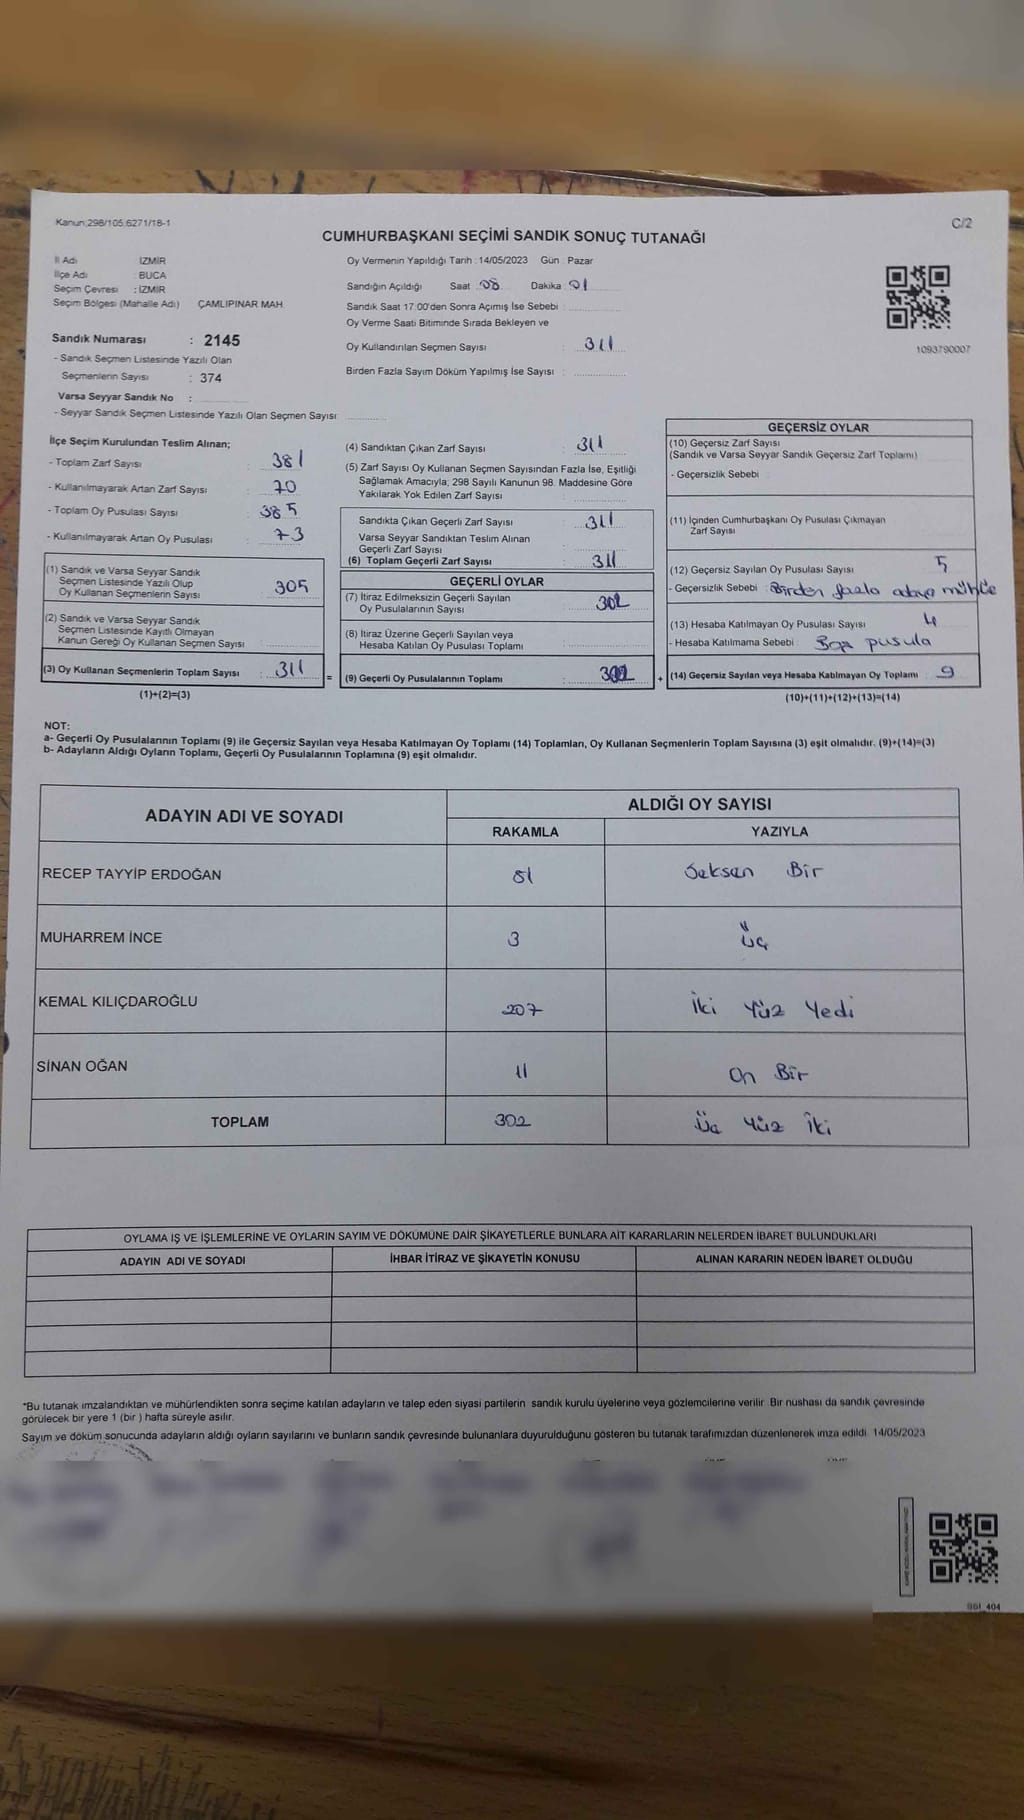 Kanun:298/105,6271/18-1
C/2
CUMHURBAŞKANI SEÇİMİ SANDIK SONUÇ TUTANAĞI
İl Adı İZMİR
İlçe Adı : BUCA
Seçim Çevresi : İZMİR
Seçim Bölgesi (Mahalle Adı) ÇAMLIPINAR MAH
Sandık Numarası : 2145
- Sandık Seçmen Listesinde Yazılı Olan
Seçmenlerin Sayısı : 374
Varsa Seyyar Sandık No :
- Seyyar Sandık Seçmen Listesinde Yazılı Olan Seçmen Sayısı
Oy Vermenin Yapıldığı Tarih : 14/05/2023 Gün : Pazar
Sandığın Açıldığı Saat : 08 Dakika 01
Sandık Saat 17:00'den Sonra Açımış İse Sebebi :
Oy Verme Saati Bitiminde Sırada Bekleyen ve
Oy Kullandırılan Seçmen Sayısı : 311
Birden Fazla Sayım Döküm Yapılmış İse Sayısı :
1093790007
İlçe Seçim Kurulundan Teslim Alınan;
- Toplam Zarf Sayısı : 381
- Kullanılmayarak Artan Zarf Sayısı : 70
- Toplam Oy Pusulası Sayısı : 385
- Kullanılmayarak Artan Oy Pusulası : 73
(1) Sandık ve Varsa Seyyar Sandık
Seçmen Listesinde Yazılı Olup
Oy Kullanan Seçmenlerin Sayısı : 305
(2) Sandık ve Varsa Seyyar Sandık
Seçmen Listesinde Kayıtlı Olmayan
Kanun Gereği Oy Kullanan Seçmen Sayısı :
(3) Oy Kullanan Seçmenlerin Toplam Sayısı : 311
(1)+(2)=(3)
(4) Sandıktan Çıkan Zarf Sayısı : 311
(5) Zarf Sayısı Oy Kullanan Seçmen Sayısından Fazla İse, Eşitliği
Sağlamak Amacıyla; 298 Sayılı Kanunun 98. Maddesine Göre
Yakılarak Yok Edilen Zarf Sayısı :
Sandıkta Çıkan Geçerli Zarf Sayısı : 311
Varsa Seyyar Sandıktan Teslim Alınan
Geçerli Zarf Sayısı
(6) Toplam Geçerli Zarf Sayısı : 311
GEÇERLİ OYLAR
(7) İtiraz Edilmeksizin Geçerli Sayılan
Oy Pusulalarının Sayısı : 302
(8) İtiraz Üzerine Geçerli Sayılan veya
Hesaba Katılan Oy Pusulası Toplamı :
= (9) Geçerli Oy Pusulalarının Toplamı : 302
GEÇERSİZ OYLAR
(10) Geçersiz Zarf Sayısı
(Sandık ve Varsa Seyyar Sandık Geçersiz Zarf Toplamı)
- Geçersizlik Sebebi
(11) İçinden Cumhurbaşkanı Oy Pusulası Çıkmayan
Zarf Sayısı
(12) Geçersiz Sayılan Oy Pusulası Sayısı 5
- Geçersizlik Sebebi : Birden fazla adaya
(13) Hesaba Katılmayan Oy Pusulası Sayısı 4
- Hesaba Katılmama Sebebi Boş pusula
+ (14) Geçersiz Sayılan veya Hesaba Katılmayan Oy Toplamı : 9
(10)+(11)+(12)+(13)=(14)
NOT:
a- Geçerli Oy Pusulalarının Toplamı (9) ile Geçersiz Sayılan veya Hesaba Katılmayan Oy Toplamı (14) Toplamları, Oy Kullanan Seçmenlerin Toplam Sayısına (3) eşit olmalıdır. (9)+(14)=(3)
b- Adayların Aldığı Oyların Toplamı, Geçerli Oy Pusulalarının Toplamına (9) eşit olmalıdır.
ADAYIN ADI VE SOYADI ALDIĞI OY SAYISI
RAKAMLA YAZIYLA
RECEP TAYYİP ERDOĞAN 81 Seksen Bir
MUHARREM İNCE 3 Üç
KEMAL KILIÇDAROĞLU 207 İki Yüz Yedi
SİNAN OĞAN 11 On Bir
TOPLAM 302 Üç Yüz İki
OYLAMA İŞ VE İŞLEMLERİNE VE OYLARIN SAYIM VE DÖKÜMÜNE DAİR ŞİKAYETLERLE BUNLARA AİT KARARLARIN NELERDEN İBARET BULUNDUKLARI
ADAYIN ADI VE SOYADI İHBAR İTİRAZ VE ŞİKAYETİN KONUSU ALINAN KARARIN NEDEN İBARET OLDUĞU
*Bu tutanak imzalandıktan ve mühürlendikten sonra seçime katılan adayların ve talep eden siyasi partilerin sandık kurulu üyelerine veya gözlemcilerine verilir. Bir nüshası da sandık çevresinde
görülecek bir yere 1 (bir ) hafta süreyle asılır.
Sayım ve döküm sonucunda adayların aldığı oyların sayılarını ve bunların sandık çevresinde bulunanlara duyurulduğunu gösteren bu tutanak tarafımızdan düzenlenerek imza edildi. 14/05/2023